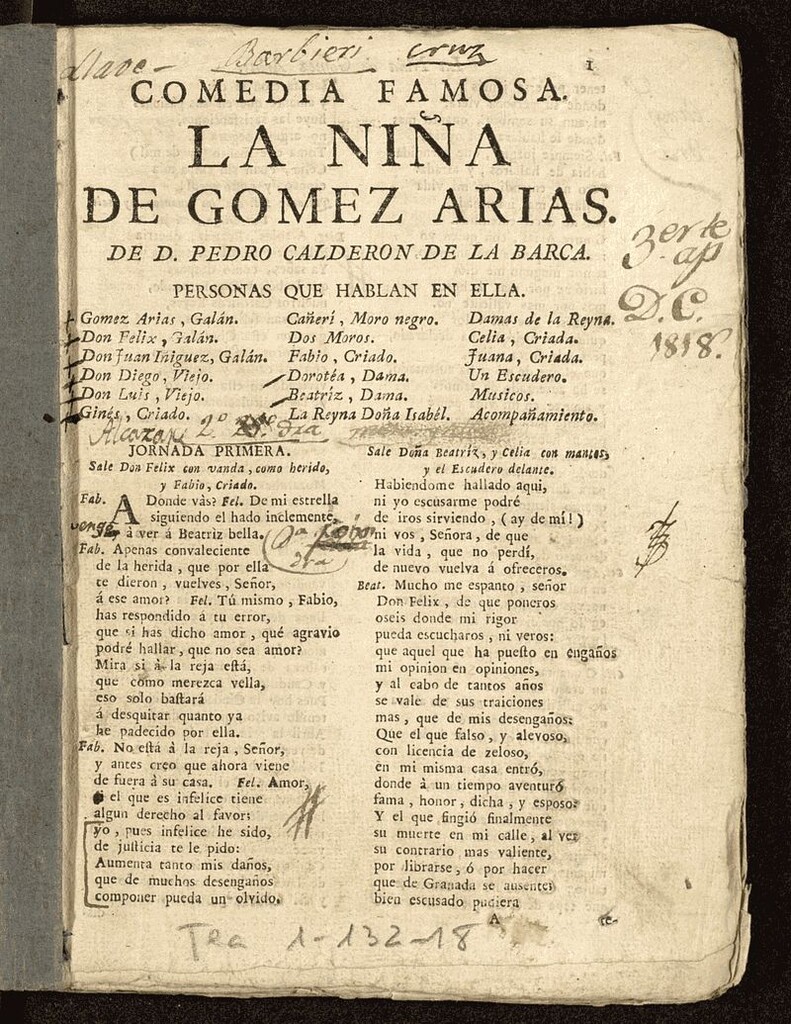 llave - Barbieri cruz
1
COMEDIA FAMOSA.
LA NIÑA
DE GOMEZ ARIAS.
DE D. PEDRO CALDERON DE LA BARCA.
3.er te
ap
D.C.
1818.
PERSONAS QUE HABLAN EN ELLA.
Gomez Arias, Galán.
Don Felix, Galán.
Don Juan Iñiguez, Galán.
Don Diego, Viejo.
Don Luis, Viejo.
Ginés, Criado.
Cañerí, Moro negro.
Dos Moros.
Fabio, Criado.
Dorotéa, Dama.
Beatríz, Dama.
La Reyna Doña Isabél.
Damas de la Reyna.
Celia, Criada.
Juana, Criada.
Un Escudero.
Musicos.
Acompañamiento.
2.º
JORNADA PRIMERA.
Sale Don Felix con vanda, como herido,
y Fabio, Criado.
Fab. A Donde vàs? Fel. De mi estrella
siguiendo el hado inclemente,
vengo à vér á Beatriz bella.
Fab. Apenas convaleciente
de la herida, que por ella
te dieron, vuelves, Señor,
á ese amor? Fel. Tú mismo, Fabio,
has respondido á tu error,
que si has dicho amor, qué agravio
podré hallar, que no sea amor?
Mira si à la reja está,
que como merezca vella,
eso solo bastará
á desquitar quanto ya
he padecido por ella.
Fab. No está à la reja, Señor,
y antes creo que ahora viene
de fuera à su casa. Fel. Amor,
el que es infelice tiene
algun derecho al favor:
yo, pues infelice he sido,
de justicia te le pido:
Aumenta tanto mis daños,
que de muchos desengaños
componer pueda un olvido.
Sale Doña Beatriz, y Celia con mantos,
y el Escudero delante.
Habiendome hallado aqui,
ni yo escusarme podré
de iros sirviendo, (ay de mí!)
ni vos, Señora, de que
la vida, que no perdí,
de nuevo vuelva á ofreceros.
Beat. Mucho me espanto, señor
Don Felix, de que poneros
oseis donde mi rigor
pueda escucharos, ni veros:
que aquel que ha puesto en engaños
mi opinion en opiniones,
y al cabo de tantos años
se vale de sus traiciones
mas, que de mis desengaños:
Que el que falso, y alevoso,
con licencia de zeloso,
en mi misma casa entró,
donde à un tiempo aventuró
fama, honor, dicha, y esposo:
Y el que fingió finalmente
su muerte en mi calle, al ver
su contrario mas valiente,
por librarse, ó por hacer
que de Granada se ausente:
bien escusado pudiera
A te-
Tea 1-132-18